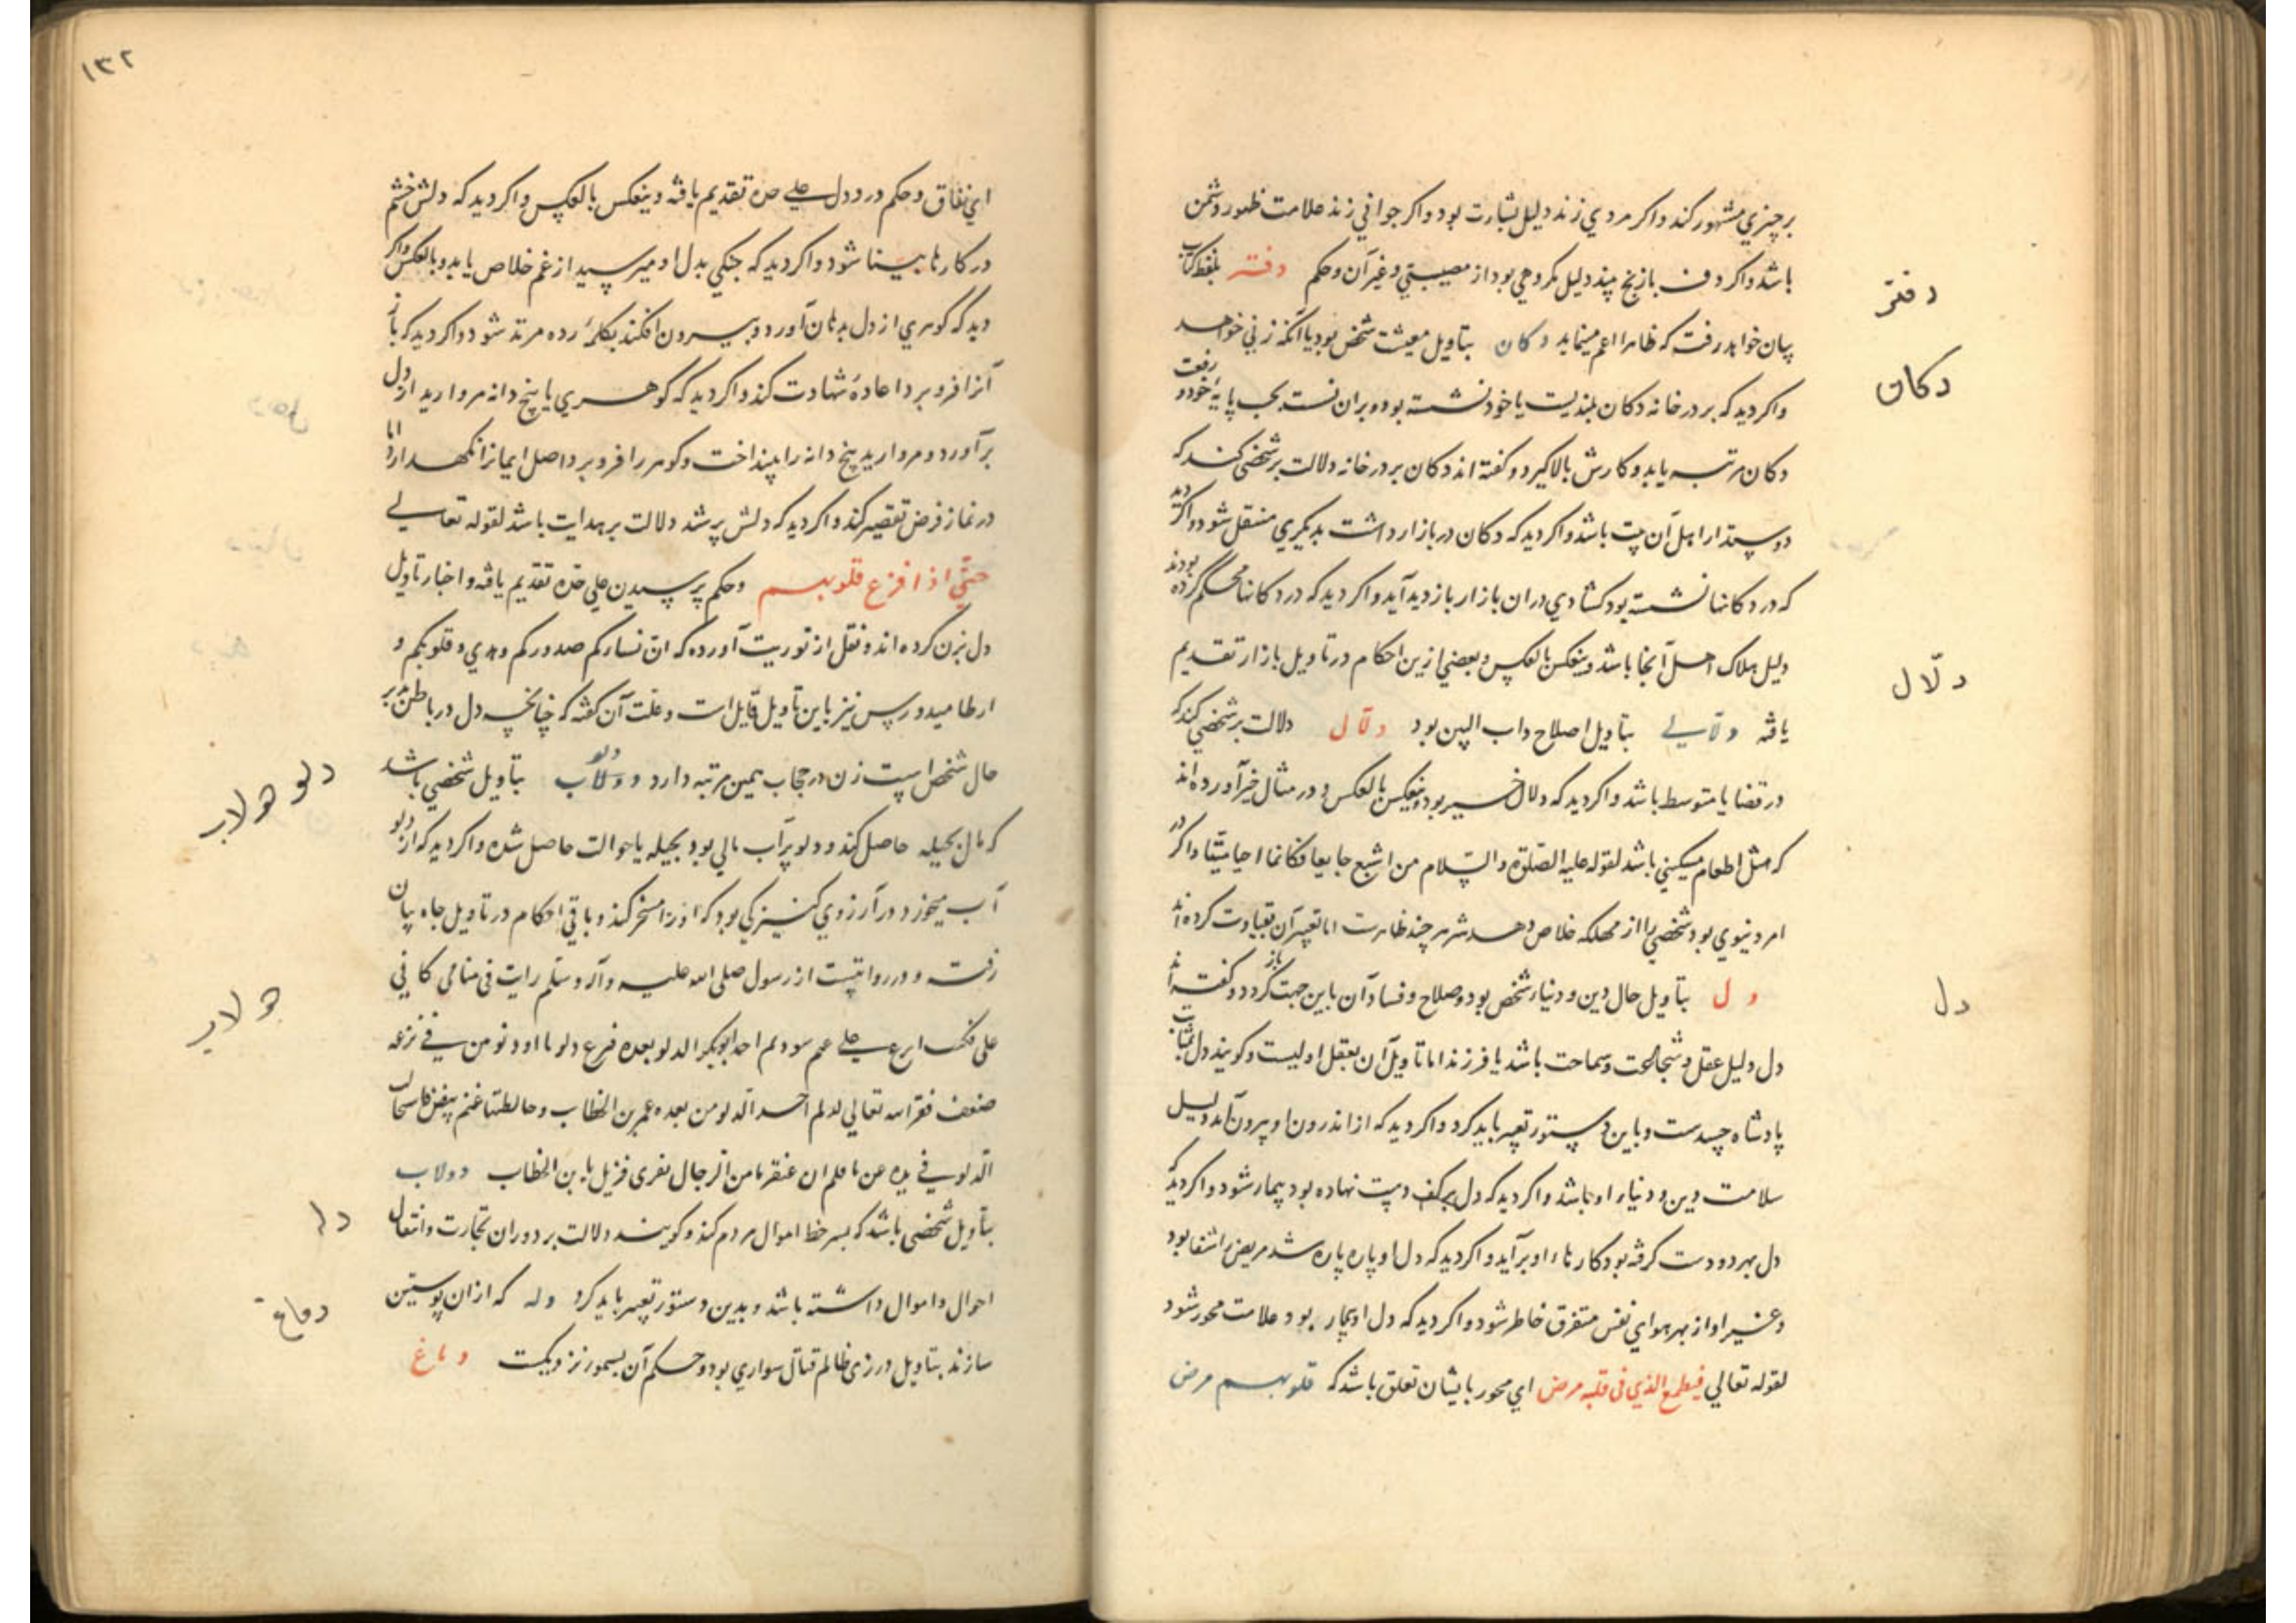 بر چیزي مشهور کند و اکر مردي زند دلیل بشارت بود و اکر جواني زند علامت ظهور دشمن
باشد و اکر دف بازنج بیند دلیل مکروهي بود از مصیبتي و غیر آن و حکم دفتر بلفظ کتاب
بیان خواهد رفت که ظاهرا اعم مینماید دکان بتاویل معیشت شخص بود یا آنکه زني خواهد
واکر دید که بر در خانه دکان بلندیست یا خود نشسته بود و بران نسبت بحسب پایهٔ خود رفعت
دکان مرتبه یابد و کارش بالا کیرد و کفته اند دکان بر در خانه دلالت بر شخصي کند که
دوستدار اهل آن بیت باشد و اکر دید که دکان در بازار داشت بدیکري منتقل شود و اکر دید
که در دکانها نشسته بود کشادي دران بازار بازدید آید و اکر دید که در دکانها محکم کرده بودند
دلیل هلاک اهل آنجا باشد و ینعکس بالعکس و بعضي ازین احکام در تاویل بازار تقدیم
یافته دلالي بتاویل اصلاح ذات البین بود دلال دلالت بر شخصي کند که
در قضایا متوسط باشد و اکر دید که دلال خیر بود و ینعکس بالعکس و در مثال خیر آورده اند
که مثل اطعام مسکیني باشد لقوله علیه الصلوة والسلام من اشبع جایعا فکانما احیا میتا و اکر در
امر دنیوي بود شخصي را از مهلکه خلاص دهد شر هر چند ظاهرست اما تعبیر آن بقیادت کرده اند
دل بتاویل حال دین و دنیاء شخص بود و صلاح و فساد آن باین جهت باز کردد و کفته اند
دل دلیل عقل و شجاعت و سماحت باشد یا فرزند اما تاویل آن بعقل اولیست و کویند دل بمثابت
پادشاه جسدست و باین دستور تعبیر باید کرد و اکر دید که از اندرون او بیرون آمد دلیل
سلامت دین و دنیاء او باشد و اکر دید که دل بر کف دست نهاده بود بیمار شود و اکر دید که
دل بهر دو دست کرفته بود کارهاء او بر آید و اکر دید که دل او پاره پاره شد مریض را شفا بود
و غیر او از بهر هواي نفس متفرق خاطر شود و اکر دید که دل او بیمار بود علامت محور شود
لقوله تعالي فیطمع الذي في قلبه مرض اي محور بایشان تعلق باشد که قلوبهم مرض
دفتر
دکان
دلّال
دل
۱۳۲
اي نفاق و حکم درد دل علی حده تقدیم یافته و ینعکس بالعکس و اکر دید که دلش خشم
در کارها بینا شود و اکر دید که جنکي بدل او میرسید از غم خلاص یابد و بالعکس و اکر
دید که کوهري از دل بدهان آورد و بیرون افکند بکلمهٔ رده مرتد شود و اکر دید که باز
آنرا فرو برد اعادهٔ شهادت کند و اکر دید که کوهري یا پنج دانه مروارید از دل
بر آورد و مروارید پنج دانه را بینداخت و کوهر را فرو برد اصل ایمانرا نکهدارد اما
در نماز فرض تقصیر کند و اکر دید که دلش پر شد دلالت بر هدایت باشد لقوله تعالی
حتي اذا فزع قلوبهم و حکم پرسیدن علي حده تقدیم یافته و اخبار تاویل
دل بزن کرده اند و نقل از توریت آورده که ان نساءکم صدورکم و قلوبکم و
ارطامیدورس نیز باین تاویل قایل است و علت آن کفته که چنانکه دل در باطن مدبر
حال شخص است زن در حجاب همین مرتبه دارد دلو و دولاب بتاویل شخصي باشد
که مال بحیله حاصل کند و دلو پر آب مالي بود بحیله یا حوالت حاصل شده و اکر دید که از دلو
آب میخورد در آرزوي کنیزکي بود که او را مسخر کند و باقي احکام در تاویل چاه بیان
رفت و در روایتست از رسول صلی الله علیه و آله و سلم رایت في منامي کاني
علی
ضعف فغفر الله تعالي له ثم اخذ الدلو من بعده عمر بن الخطاب
الدلو في یده بن الخطاب دولاب
بتاویل شخصي باشد که بسر خط اموال مردم کند و کویند دلالت بر دوران تجارت و انتقال
احوال و اموال داشته باشد و بدین دستور تعبیر باید کرد دله که ازان پوستین
سازند بتاویل دزدي ظالم قتال سواري بود و حکم آن بسمور نزدیکست دماغ
دلو
دله
دماغ